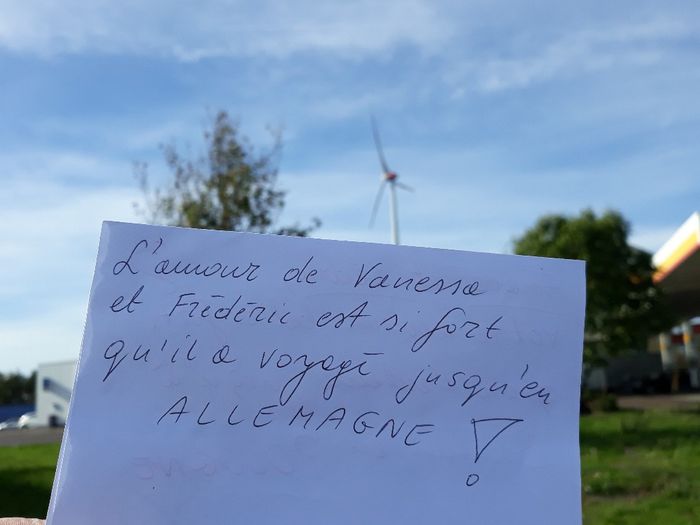 L'amour de Vanessa
et Frédéric est si fort
qu'il a voyagé jusqu'en
ALLEMAGNE !